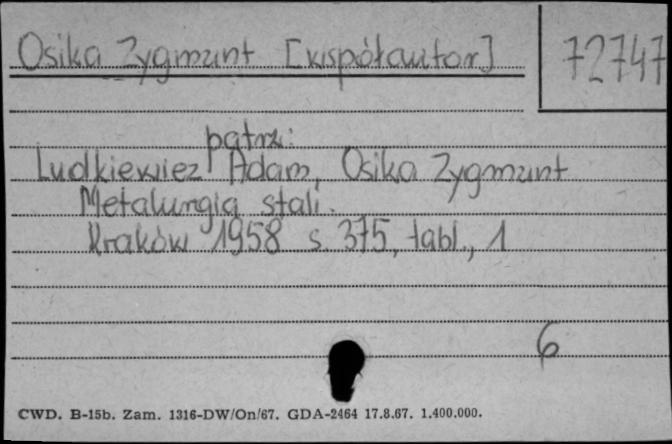 Osika Zygmunt [współautor]
72747
patrz:
Ludkiewicz Adam, Osika Zygmunt
Metalurgia stali.
Kraków 1958 s. 375, tabl., 1
6
CWD. B-15b. Zam. 1316-DW/On/67. GDA-2464 17.8.67. 1.400.000.